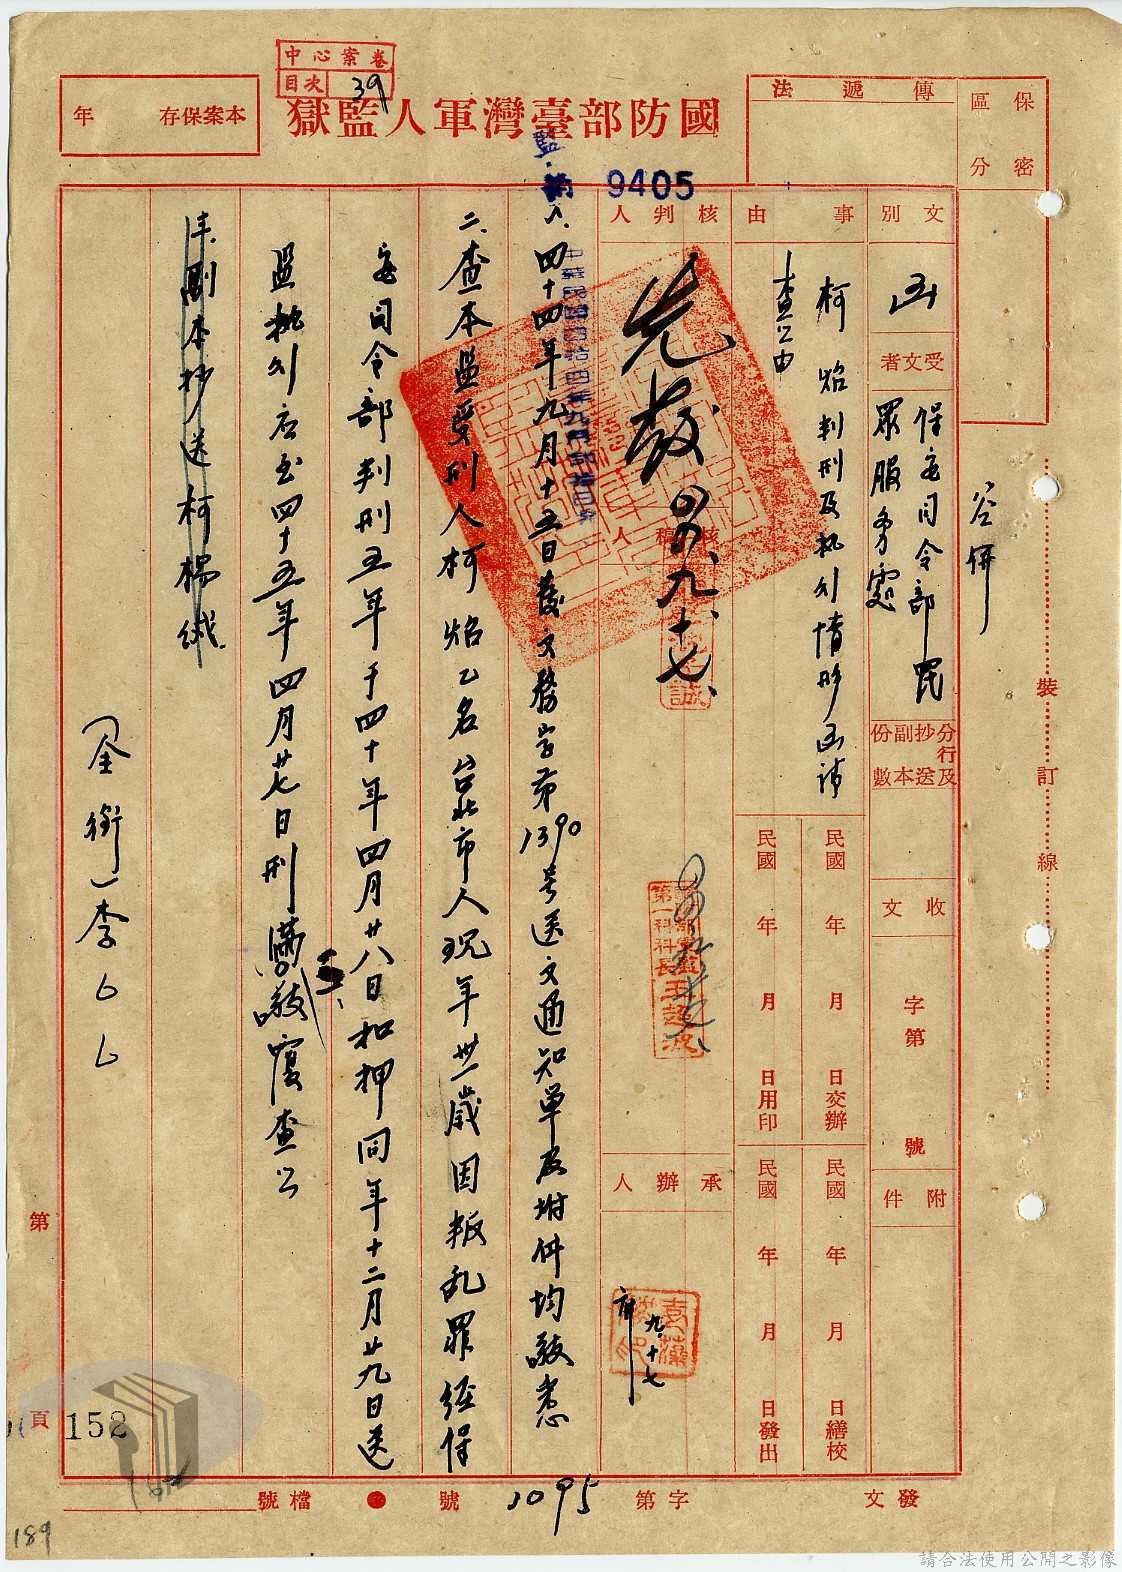 中心案卷
目次 39
國防部臺灣軍人監獄
本案保存 年
傳遞法
保密區分
監
9405
文別
函
受文者
保安司令部 罪服勞處
事由
柯焰判刑及执行情形函請
查公由
分行及抄送副本份數
收文 字第 號
附件
民國 年 月 日交辦
民國 年 月 日繕校
民國 年 月 日用印
民國 年 月 日發出
核判人
先啟
九、十七、
核稿人
誠
第一科科長
承辦人
九、十七
四十四年九月十五日發文務字第1390号送文通知單及坿件均敬悉
二、查本监受刑人柯焰乙名台北市人現年卅一歲因叛乱罪经保
安司令部判刑五年于四十年四月廿八日扣押同年十二月廿九日送
监执行应至四十五年四月廿七日刑滿
三、敬覆查公
副本抄送柯楊
(全銜)李
裝訂線
發文 字第 1095 號
檔號
第 頁
152
189
請合法使用公開之影像